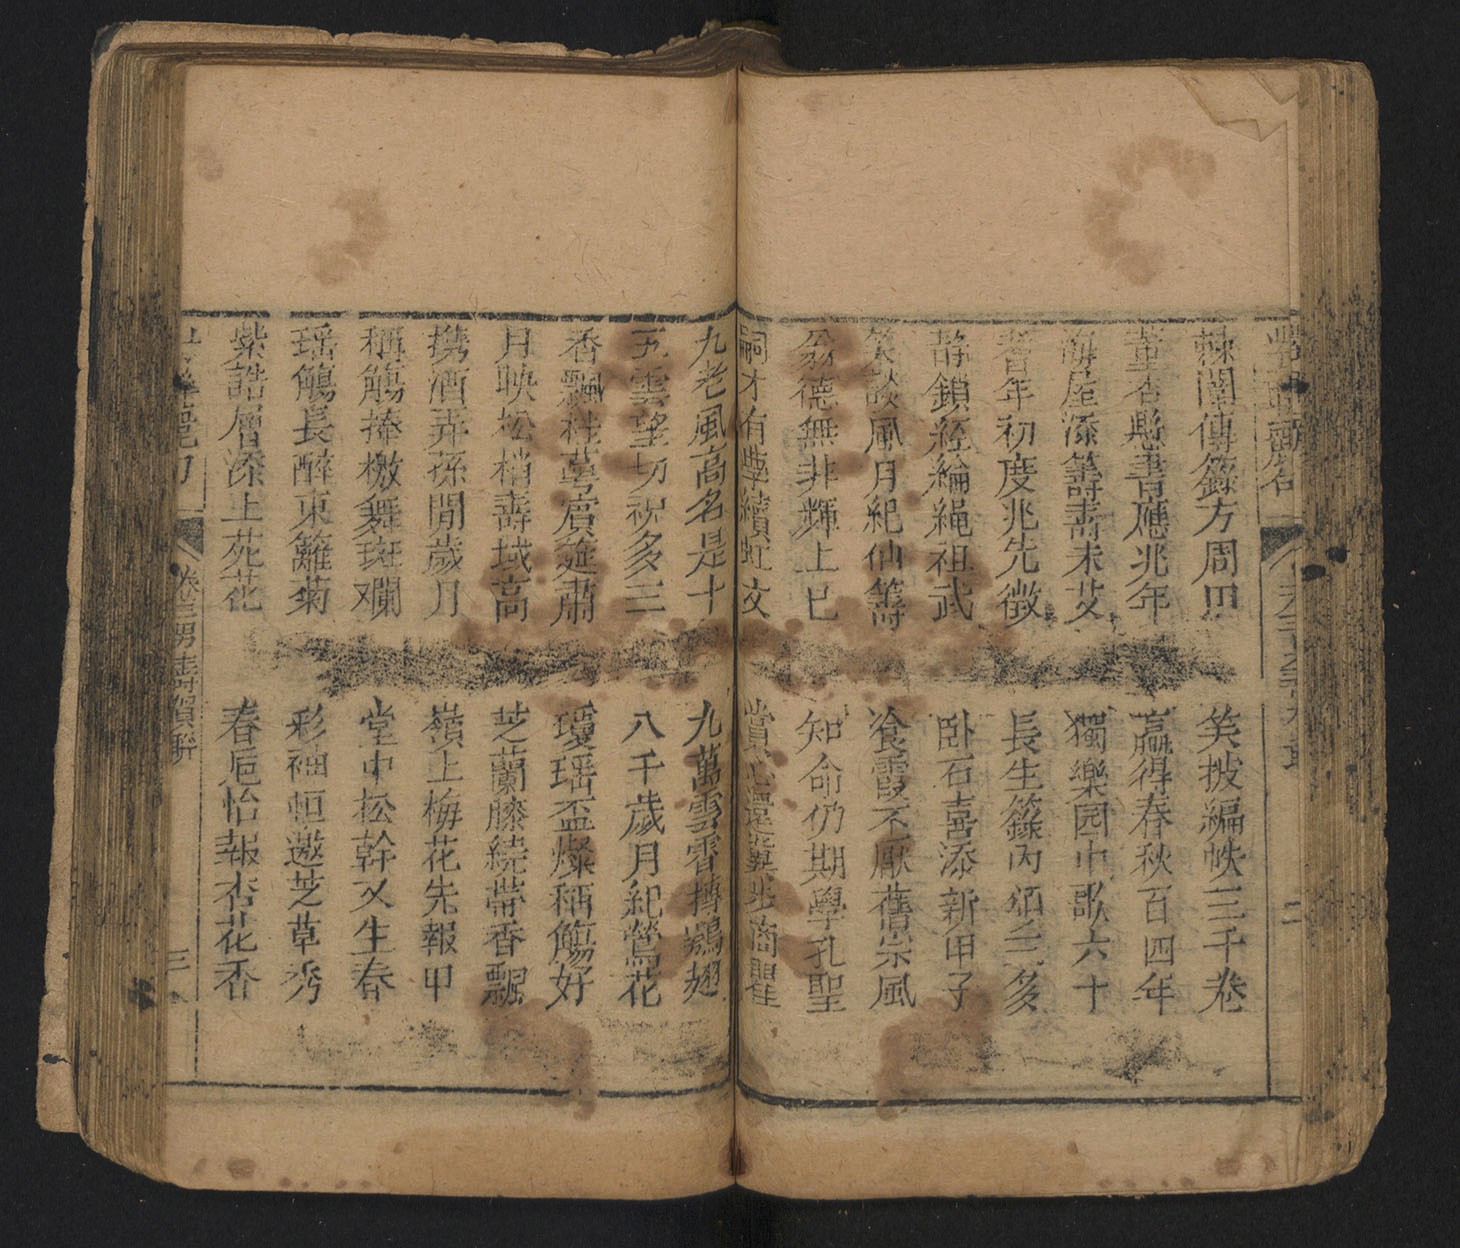 棘闈傳籙方周甲
笑披編帙三千卷
董杏懸書應兆年
贏得春秋百四年
海屋添籌壽未艾
獨樂园中歌六十
耆年初度兆先徵
長生籙內頌三多
靜鎖經綸繩祖武
卧石喜添新甲子
笑談風月紀仙籌
飡霞不厭舊宗風
翁德無非輝上巳
知命仍期學孔聖
嗣才有學續虹文
賞心還冀步商瞿
九老風高名是十
九萬雲霄摶鶚翅
五雲望切祝多三
八千歲月紀鶯花
香飄桂蕚層筵肅
瓊瑶盃燦稱觴好
月映松梢壽域高
芝蘭膝繞帶香飄
携酒弄孫閒歲月
嶺上梅花先報甲
稱觴捧檄舞斑斕
堂中松幹又生春
瑶觴長醉東籬菊
彩袖恒邀芝草秀
紫誥層添上苑花
春卮怡報杏花香
卷三男壽賀聯
三